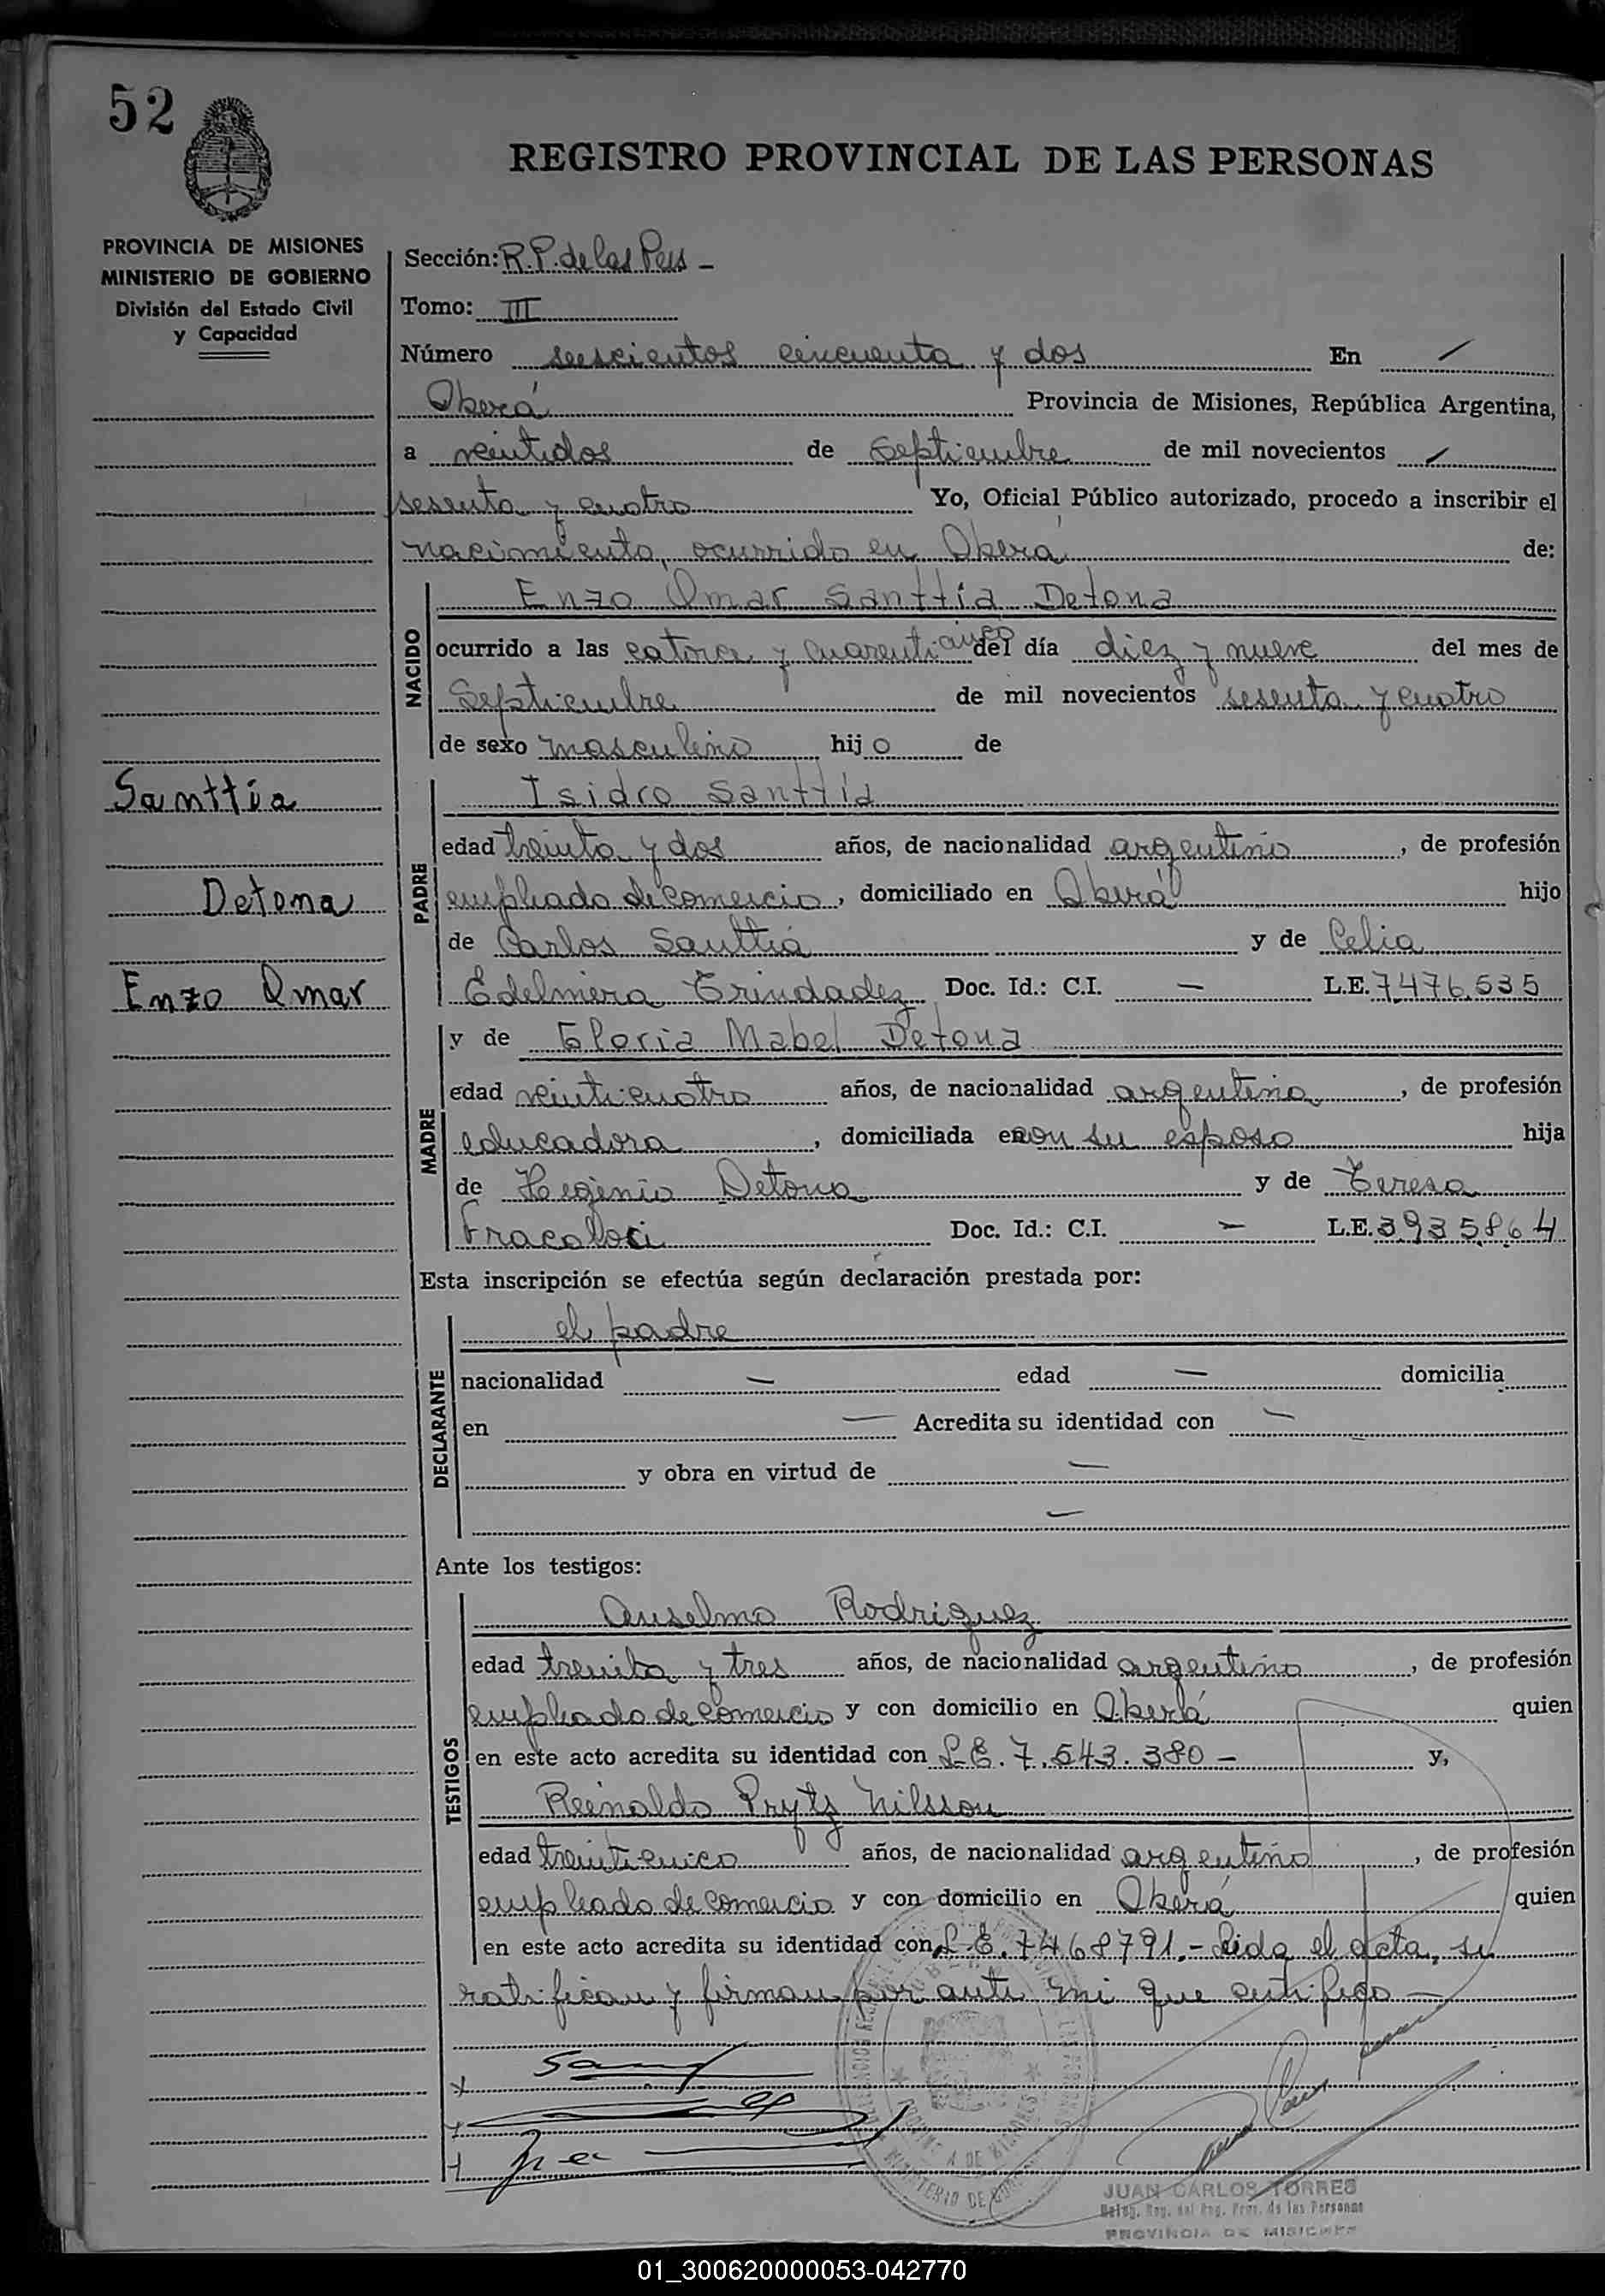 52
REGISTRO PROVINCIAL DE LAS PERSONAS
PROVINCIA DE MISIONES
MINISTERIO DE GOBIERNO
División del Estado Civil
y Capacidad
Sección: R.P. de las Pers -
Tomo: III
Número seiscientos cincuenta y dos En
Oberá Provincia de Misiones, República Argentina,
a veintidos de Septiembre de mil novecientos
sesenta y cuatro Yo, Oficial Público autorizado, procedo a inscribir el
nacimiento, ocurrido en Oberá de:
NACIDO
Enzo Omar Santtía Detona
ocurrido a las catorce y cuarenticinco del día diez y nueve del mes de
Septiembre de mil novecientos sesenta y cuatro
de sexo masculino hijo de
Santtía
Detona
Enzo Omar
PADRE
Isidro Santtía
edad treinta y dos años, de nacionalidad argentino, de profesión
empleado de comercio, domiciliado en Oberá hijo
de Carlos Santtía y de Celia
Edelmira Trindadez Doc. Id.: C.I. — L.E. 7.476.535
MADRE
y de Gloria Mabel Detona
edad veinticuatro años, de nacionalidad argentina, de profesión
educadora, domiciliada en con su esposo hija
de Higinio Detona y de Teresa
Fracaloci Doc. Id.: C.I. — L.E. 3.935.864
Esta inscripción se efectúa según declaración prestada por:
DECLARANTE
el padre
nacionalidad — edad — domicilia
en — Acredita su identidad con —
y obra en virtud de —
—
Ante los testigos:
TESTIGOS
Anselmo Rodriguez
edad treinta y tres años, de nacionalidad argentino, de profesión
empleado de comercio y con domicilio en Oberá quien
en este acto acredita su identidad con L.E. 7.543.380 - y,
Reinaldo Prytz Nilsson
edad treinticinco años, de nacionalidad argentino, de profesión
empleado de comercio y con domicilio en Oberá quien
en este acto acredita su identidad con L.E. 7468791.- Leida el acta, se
ratifican y firman por ante mi que certifico —
JUAN CARLOS TORRES
Reg. del Reg. Prov. de las Personas
PROVINCIA DE MISIONES
01_300620000053-042770